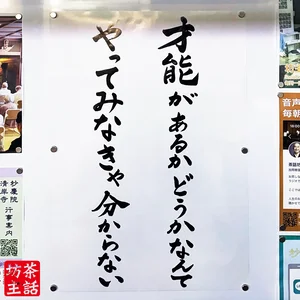 才能があるかどうかなんて
やってみなきゃ分からない
音声
毎朝
妙慶院
清岸寺
行事案内
茶話
坊主